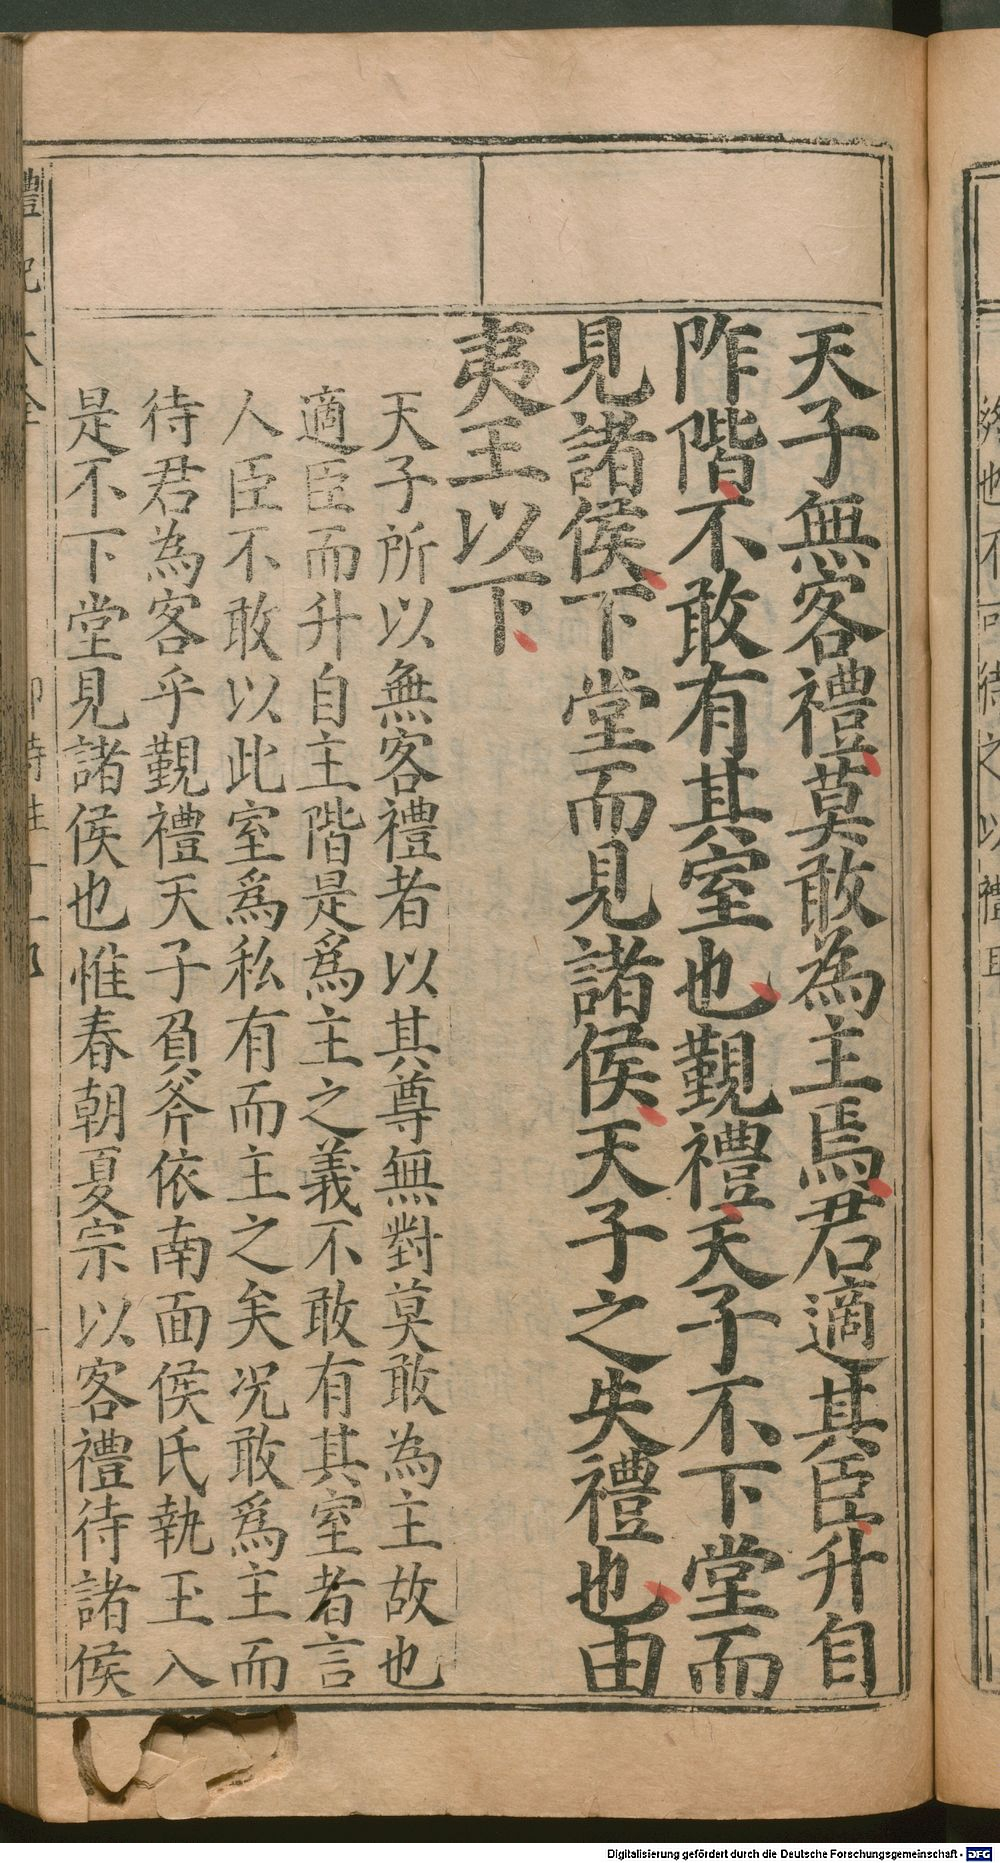 天子無客禮莫敢為主焉君適其臣升自
阼階不敢有其室也覲禮天子不下堂而
見諸侯下堂而見諸侯天子之失禮也由
夷王以下
天子所以無客禮者以其尊無對莫敢為主故也
適臣而升自主階是爲主之義不敢有其室者言
人臣不敢以此室爲私有而主之矣况敢爲主而
待君為客乎覲禮天子負斧依南面侯氏執玉入
是不下堂見諸侯也惟春朝夏宗以客禮待諸侯
禮記大全
Digitalisierung gefördert durch die Deutsche Forschungsgemeinschaft - DFG